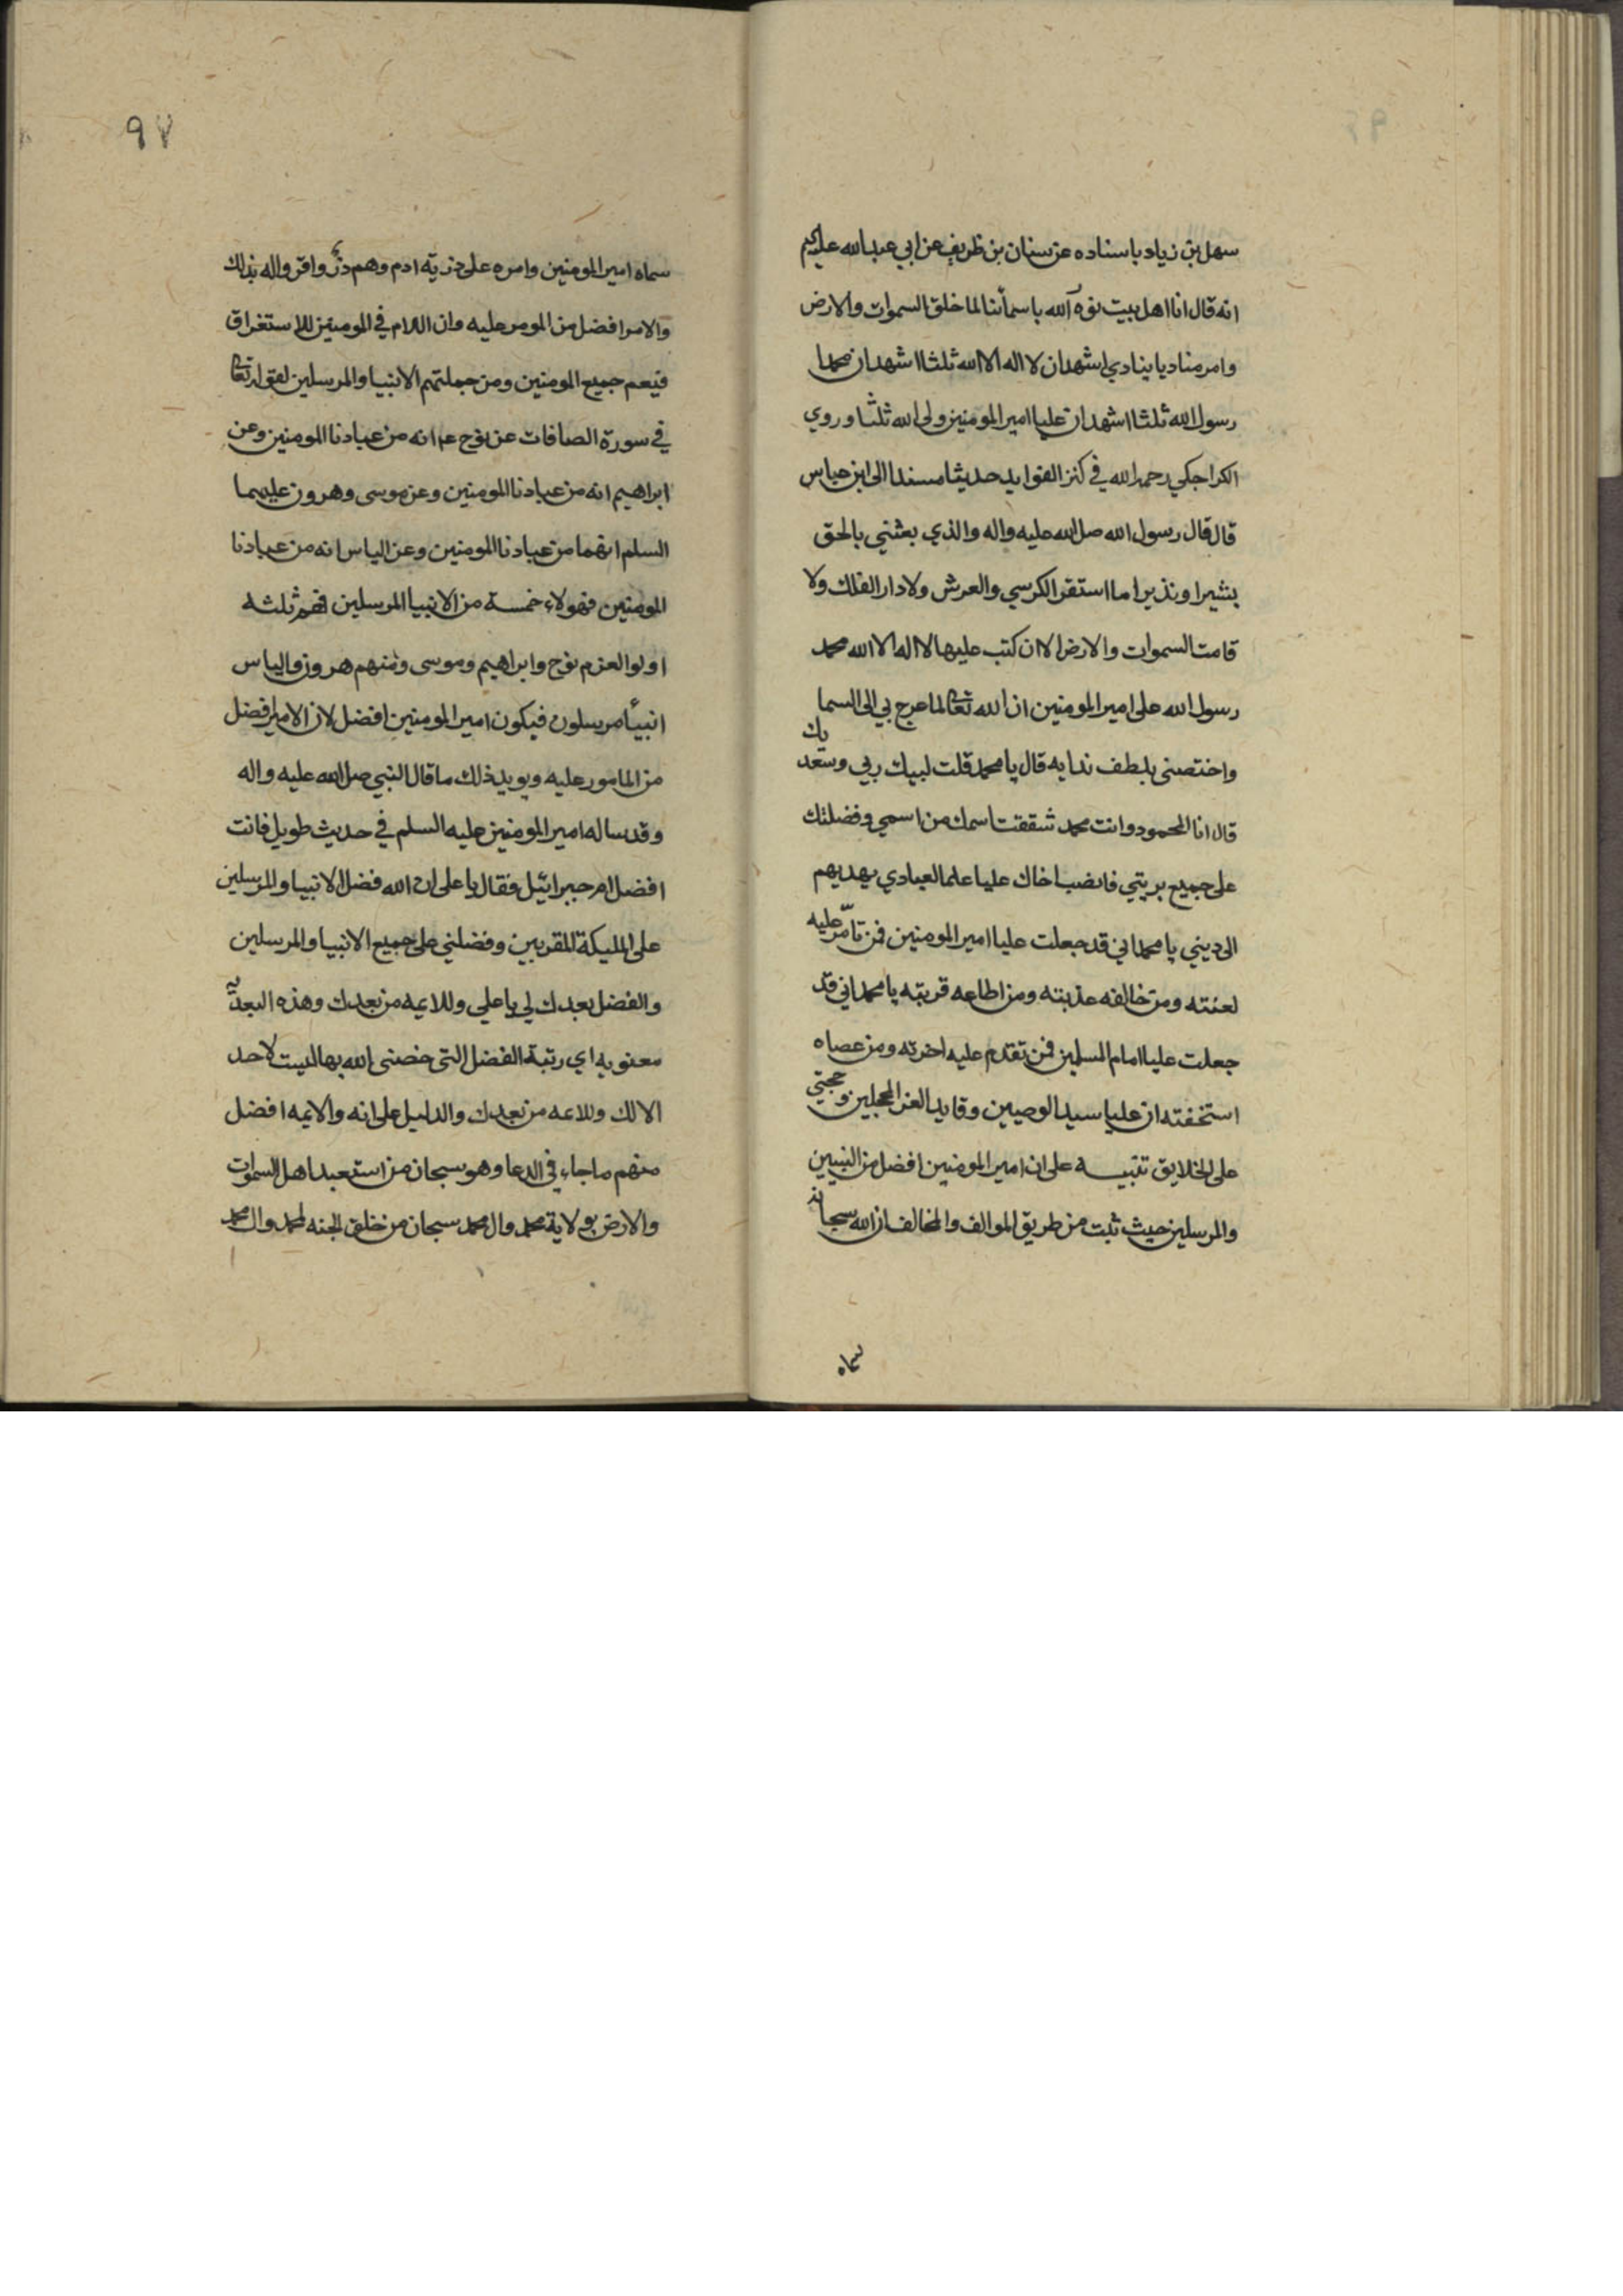 سهل بن زياد باسناده عن سنان بن ظريف عن ابي عبد الله عليلم
انه قال انا اهل بيت نوه الله باسمائنا لما خلق السموات والارض
وامر مناديا ينادي اشهد ان لا اله الا الله ثلثا اشهد ان محمدا
رسول الله ثلثا اشهد ان عليا امير المومنين ولي الله ثلثا وروي
الكراجكي رحمه الله في كنز الفوايد حديثا مسندا الى ابن عباس
قال قال رسول الله صل الله عليه واله والذي بعثني بالحق
بشيرا ونذيرا ما استقر الكرسي والعرش ولا دار الفلك ولا
قامت السموات والارض الا ان كتب عليها لا اله الا الله محمد
رسول الله على امير المومنين ان الله تعالى لما عرج بي الى السما
واختصنى بلطف ندايه قال يا محمد قلت لبيك ربي وسعديك
قال انا المحمود وانت محمد شققت اسمك من اسمي وفضلتك
على جميع بريتي فانصب اخاك عليا علما لعبادي يهديهم
الى ديني يا محمد اني قد جعلت عليا امير المومنين فمن تامّر عليه
لعنته ومن خالفه عذبته ومن اطاعه قربته يا محمد اني قد
جعلت عليا امام المسلمين فمن تقدم عليه اخرته ومن عصاه
استخفته ان عليا سيد الوصيين وقايد الغر المحجلين وحجتي
على الخلايق تنبيه على ان امير المومنين افضل من النبيين
والمرسلين حيث ثبت من طريق الموالف والمخالف ان الله سبحانه
سماه
٩٧
سماه امير المومنين وامره على ذرية ادم وهم ذرّ واقر واله بذلك
والامر افضل من المومر عليه وان اللام في المومنين للاستغراق
فيعم جميع المومنين ومن جملتهم الانبيا والمرسلين لقوله تعالى
في سورة الصافات عن نوح ع انه من عبادنا المومنين وعن
ابراهيم انه من عبادنا المومنين وعن موسى وهرون عليهما
السلم انهما من عبادنا المومنين وعن الياس انه من عبادنا
المومنين فهولاء خمسة من الانبيا المرسلين فهم ثلثه
اولوا العزم نوح وابراهيم وموسى ومنهم هرون والياس
انبياء مرسلون فيكون امير المومنين افضل لان الامير افضل
من المامور عليه ويويد ذلك ما قال النبي صل الله عليه واله
وقد ساله امير المومنين عليه السلم في حديث طويل فانت
افضل ام جبرائيل فقال يا على ان الله فضل الانبيا والمرسلين
على المليكة المقربين وفضلني على جميع الانبيا والمرسلين
والفضل بعدك لي يا علي وللايمه من بعدك وهذه البعديّه
معنويه اي رتبة الفضل التى خصنى الله بها ليست لاحد
الا لك وللايمه من بعدك والدليل على انه والايمه افضل
منهم ما جاء في الدعا وهو سبحان من استعبد اهل السموات
والارض بولاية محمد وال محمد سبحان من خلق الجنه لمحمد وال محمد